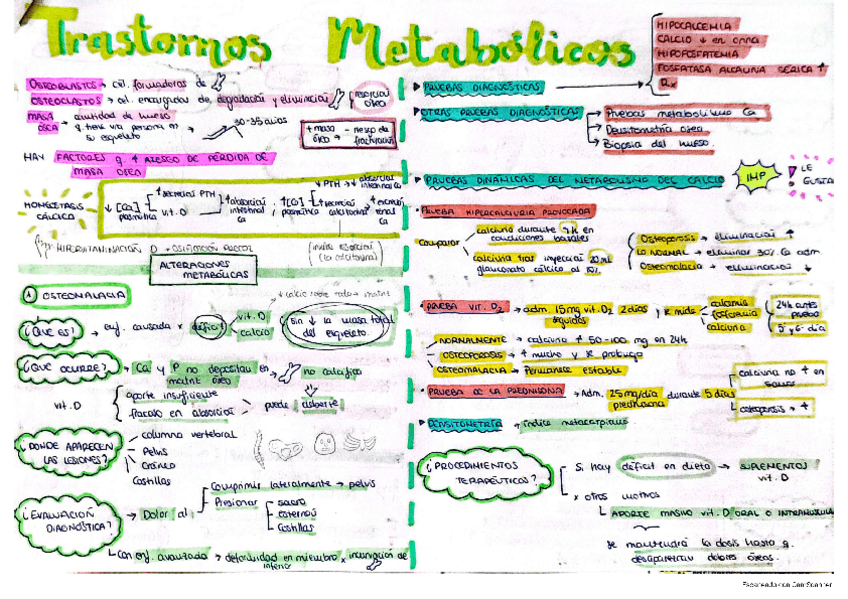 Trastornos Metabólicos
OSTEOBLASTOS → cél. formadoras de
OSTEOCLASTOS → cél. encargadas de degradación y eliminación
MASA ÓSEA → cantidad de hueso
q. tiene una persona en
su esqueleto
30-35 años
+ masa ósea → - riesgo de fracturación
HAY FACTORES q. ↑ RIESGO DE PÉRDIDA DE
MASA ÓSEA
↓ [Ca] plasmática
↑ secreción PTH
vit. D
↑ absorción intestinal Ca
ALTERACIONES
METABÓLICAS
OSTEOMALACIA
¿QUÉ ES? → enf. causada x déficit
vit. D
calcio
Sin ↓ la masa total
del esqueleto
¿QUÉ OCURRE? → Ca y P no depositan en
matriz óseo
no calcifica
vit. D
aporte insuficiente
fracaso en absorción
puede deberse
¿DÓNDE APARECEN
LAS LESIONES?
columna vertebral
Pelvis
Cráneo
Costillas
¿EVALUACIÓN
DIAGNÓSTICA? → Dolor al
Comprimir lateralmente → pelvis
Presionar
sacro
esternón
Costillas
Con enf. avanzada → deformidad en miembro
inferior
PRUEBAS DIAGNÓSTICAS
HIPOCALCEMIA
CALCIO ↓ en orina
HIPOFOSFATEMIA
FOSFATASA ALCALINA SÉRICA ↑
Rx
OTRAS PRUEBAS DIAGNÓSTICAS
Pruebas metabolismo Ca
Densitometría ósea
Biopsia del hueso.
PRUEBAS DINÁMICAS DEL METABOLISMO DEL CALCIO
IMP
LE
GUSTA
PRUEBA HIPERCALCIURIA PROVOCADA
Comparar
calciuria durante 9h en
condiciones basales
calciuria tras inyección 20mL
glucobionato cálcico al 10%.
Osteoporosis → eliminación ↑
LO NORMAL → eliminar 30% Ca adm
Osteomalacia → eliminación ↓
PRUEBA VIT. D₂ → adm. 15mg vit. D₂ 2 días
seguidos
y se mide
calcemia
fosforemia
calciuria
24h antes
prueba
5 y 6º día
NORMALMENTE → calciuria ↑ 50-100 mg en 24h
OSTEOPOROSIS → ↑ mucho y se prolonga
OSTEOMALACIA → Permanece estable
PRUEBA DE LA PREDNISONA → Adm. 25mg/día durante 5 días
prednisona
calciuria no ↑ en
sanos
osteoporosis → ↑
DENSITOMETRÍA → índice metacarpiano
¿PROCEDIMIENTOS
TERAPÉUTICOS?
Si hay déficit en dieta → SUPLEMENTOS
vit. D
x otros motivos
APORTE MASIVO vit. D ORAL O INTRAMUSCULA
se mantendrá la dosis hasta q.
desaparezcan dolores óseos.
Escaneado con CamScanner